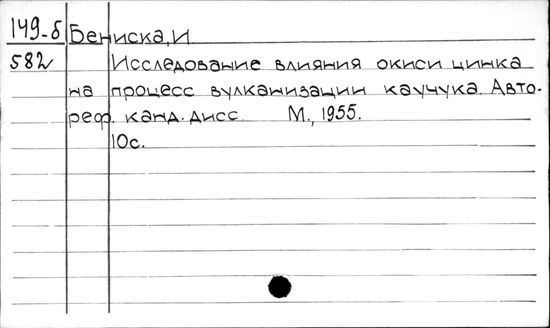 149-б Бениска, И
582 Исследование влияния окиси цинка
на процесс вулканизации каучука. Авто-
реф. канд. дисс. М., 1955.
10с.